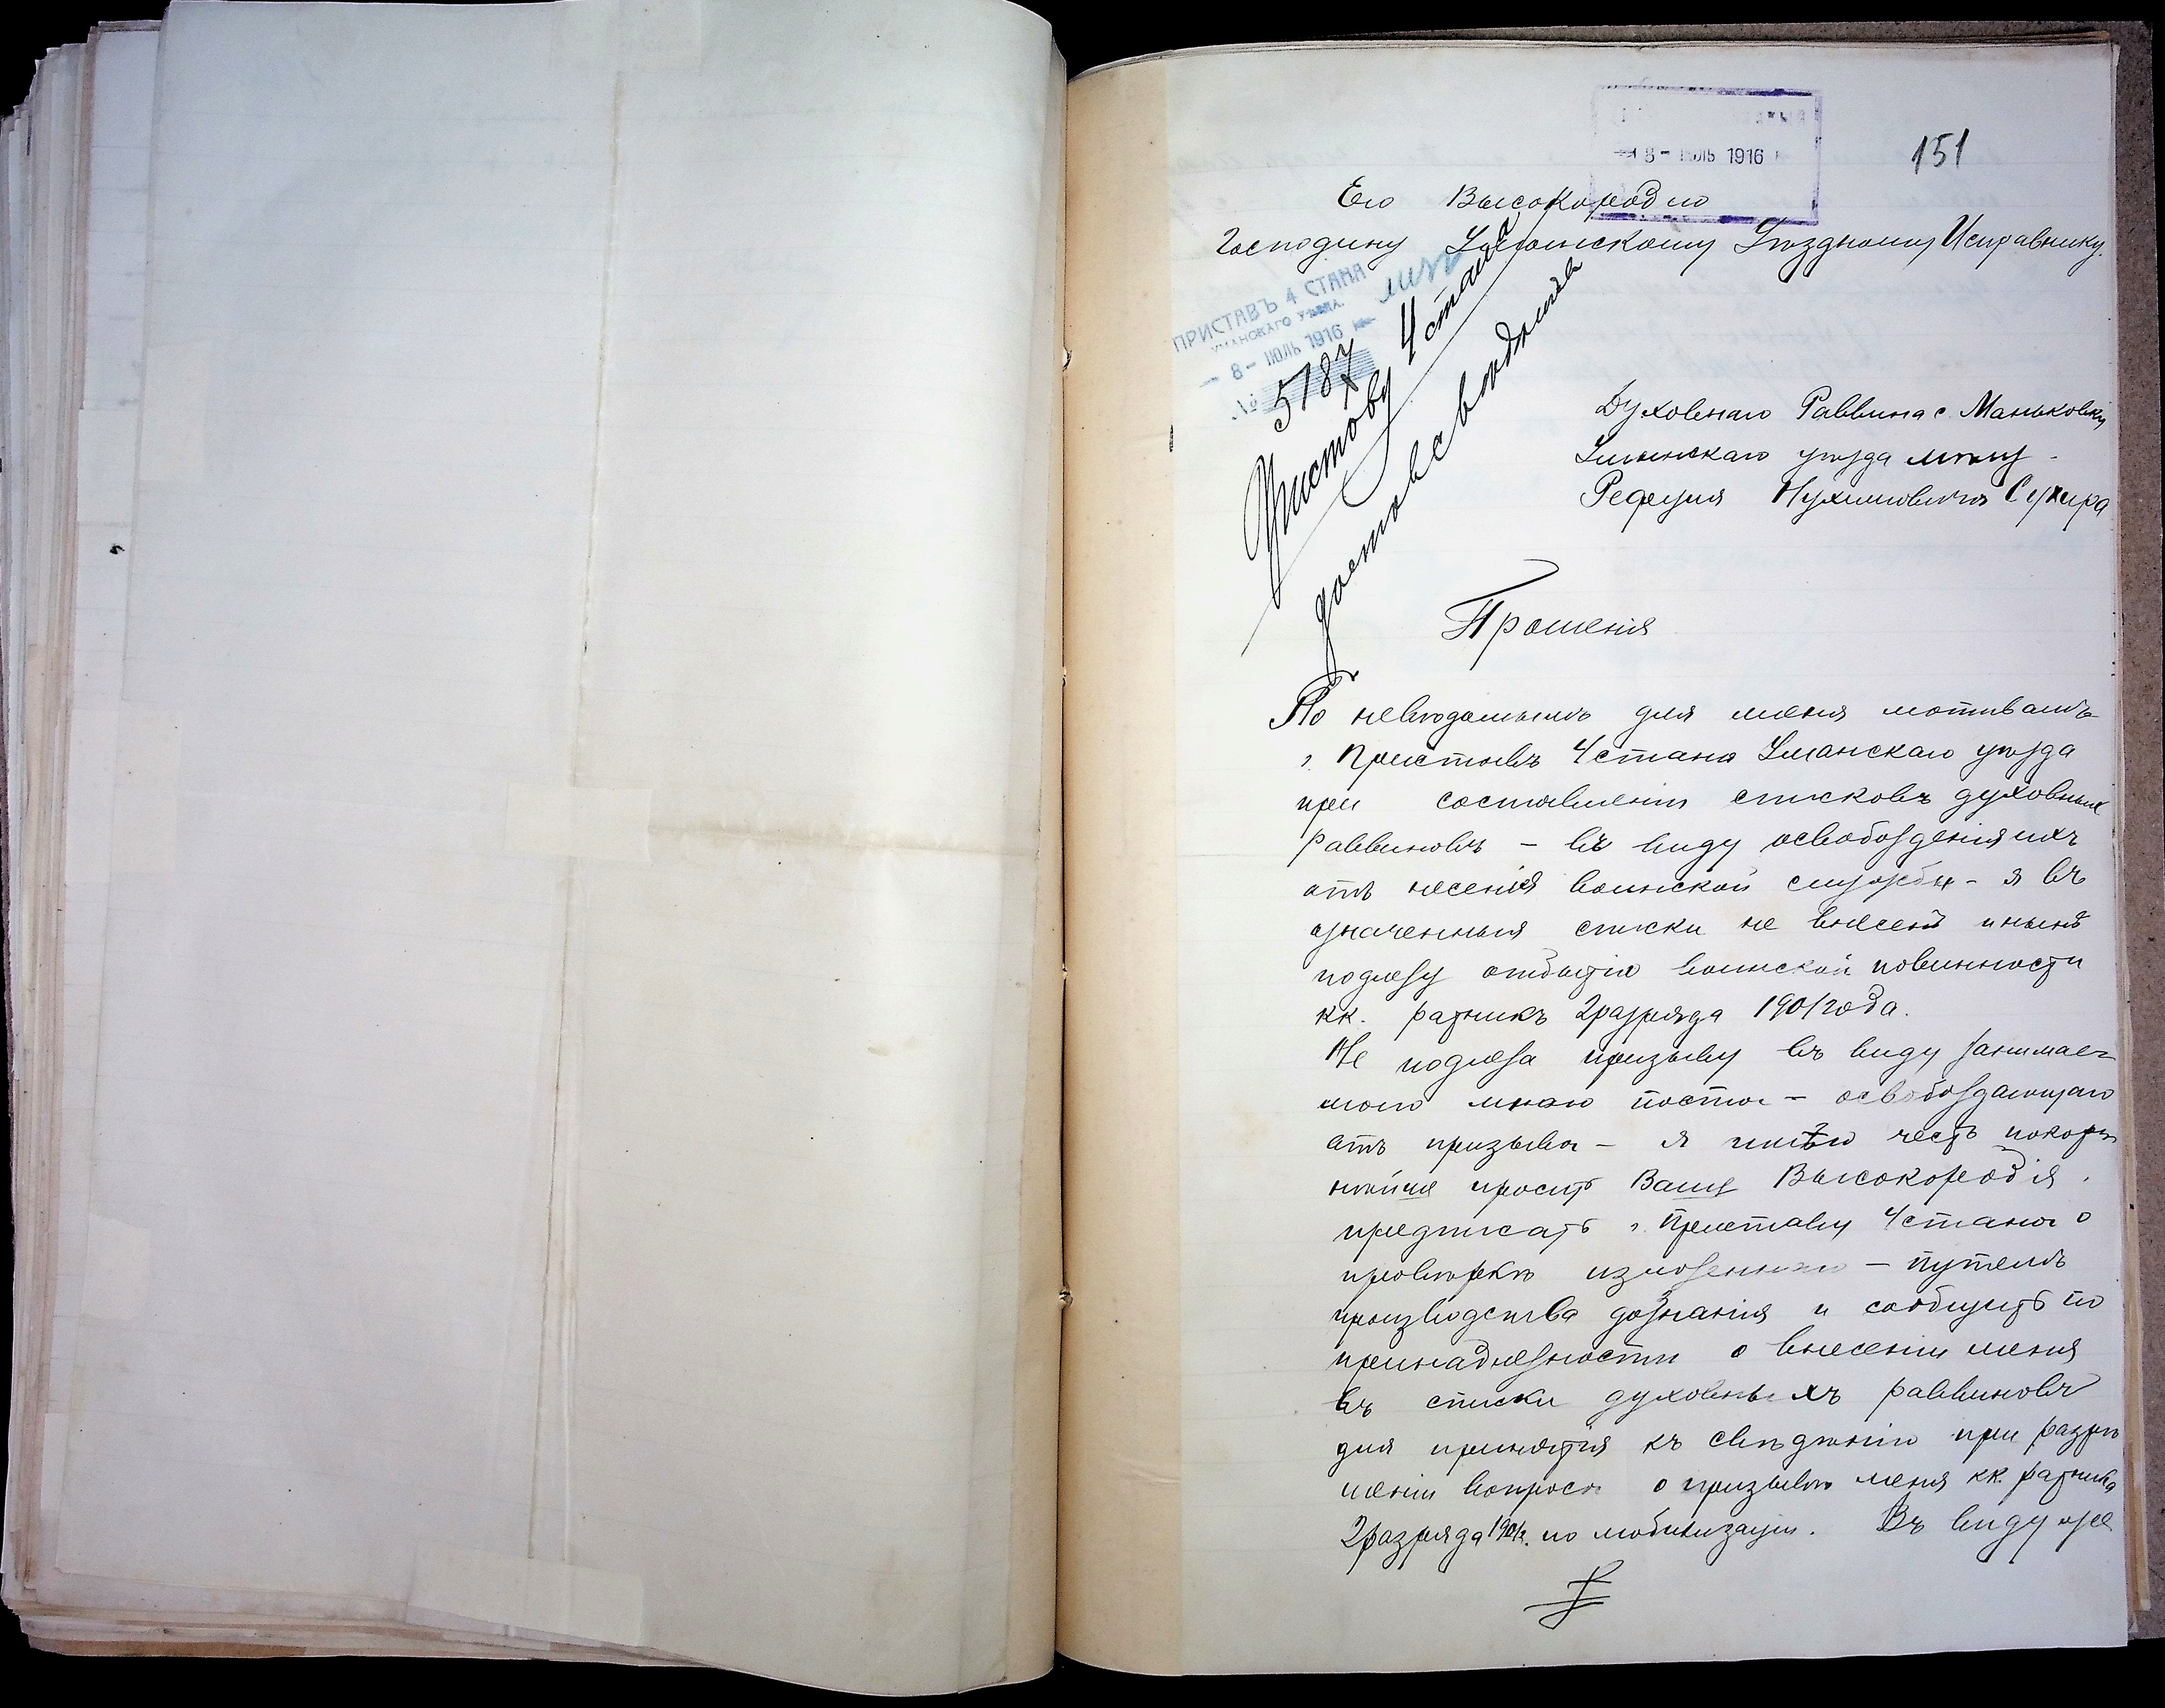 8 - ИЮЛЬ 1916
151
Его Высокородію
Господину Уманскому Уѣздному Исправнику.
ПРИСТАВЪ 4 СТАНА
УМАНСКАГО УѢЗДА.
- 8 - ИЮЛЬ 1916
№ 5187
Приставу 4 стана
Духовнаго Раввина с. Маньковки
Уманскаго уѣзда
Нухимовича Сухера
Прошенія
По невѣдомымъ для меня мотивамъ
г. Приставъ 4 стана Уманскаго уѣзда
при составленіи списковъ духовныхъ
раввиновъ – въ виду освобожденія ихъ
отъ несенія воинской службы – я въ
означенныя списки не внесенъ и нынѣ
подлежу отбытію воинской повинности
кк. ратникъ 2 разряда 1901 года.
Не подлежа призыву въ виду занимае-
мого мною поста – освобождающаго
отъ призыва – я имѣю честь покор
нѣйше просить Ваше Высокородія
предписать г. Приставу 4 стана о
провѣркѣ изложеннаго – путемъ
производства дознанія и сообщить по
принадлежности о внесеніи меня
въ списки духовныхъ раввиновъ
для принятія къ свѣдѣнію при разрѣ
шеніи вопроса о призывѣ меня кк. ратника
2 разряда 1901 г. по мобилизаціи. Въ виду же